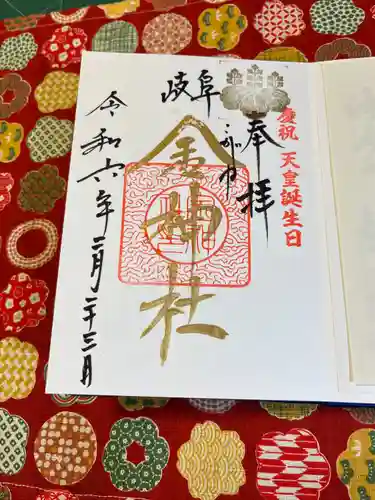 慶祝 天皇誕生日
奉拝
岐阜
金神社
令和六年二月二十三日